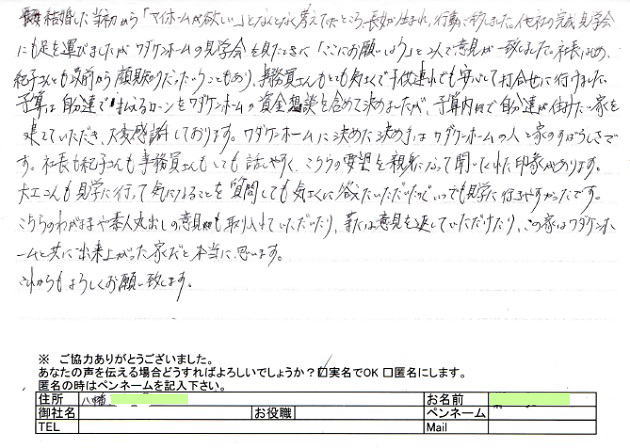 結婚した当初から「マイホームが欲しい」となんとなく考えていたところ、長女が生まれ、行動に移しました。他社の完成見学会
にも足を運びましたが、ワダケンホームの見学会を見たときに「ここにお願いしよう」と2人で意見が一致しました。社長はじめ、
紀子さんも以前から顔見知りだったいうこともあり、事務員さんもとても気さくで子供連れでも安心して打合せに行けました。
予算は自分達で払えるローンをワダケンホームの資金相談を含めて決めましたが、予算内で自分達が住みたい家を
建てていただき、大変感謝しております。ワダケンホームに決めた決め手はワダケンホームの人と家のすばらしさで
す。社長も紀子さんも事務員さんもとても話しやすく、こちらの要望を親身になって聞いてくれた印象があります。
大工さんも見学に行って気になることを質問しても気さくに答えていただいたのでいつでも見学に行きやすかったです。
こちらのわがままや素人丸出しの意見も取り入れていただいたり、または意見を返していただけたり、この家はワダケンホ
ームと共に出来上がった家だと本当に思います。
これからもよろしくお願い致します。
※ ご協力ありがとうございました。
あなたの声を伝える場合どうすればよろしいでしょうか？☑実名でOK □匿名にします。
匿名の時はペンネームを記入下さい。
住所 八幡 お名前
御社名 お役職 ペンネーム
TEL Mail